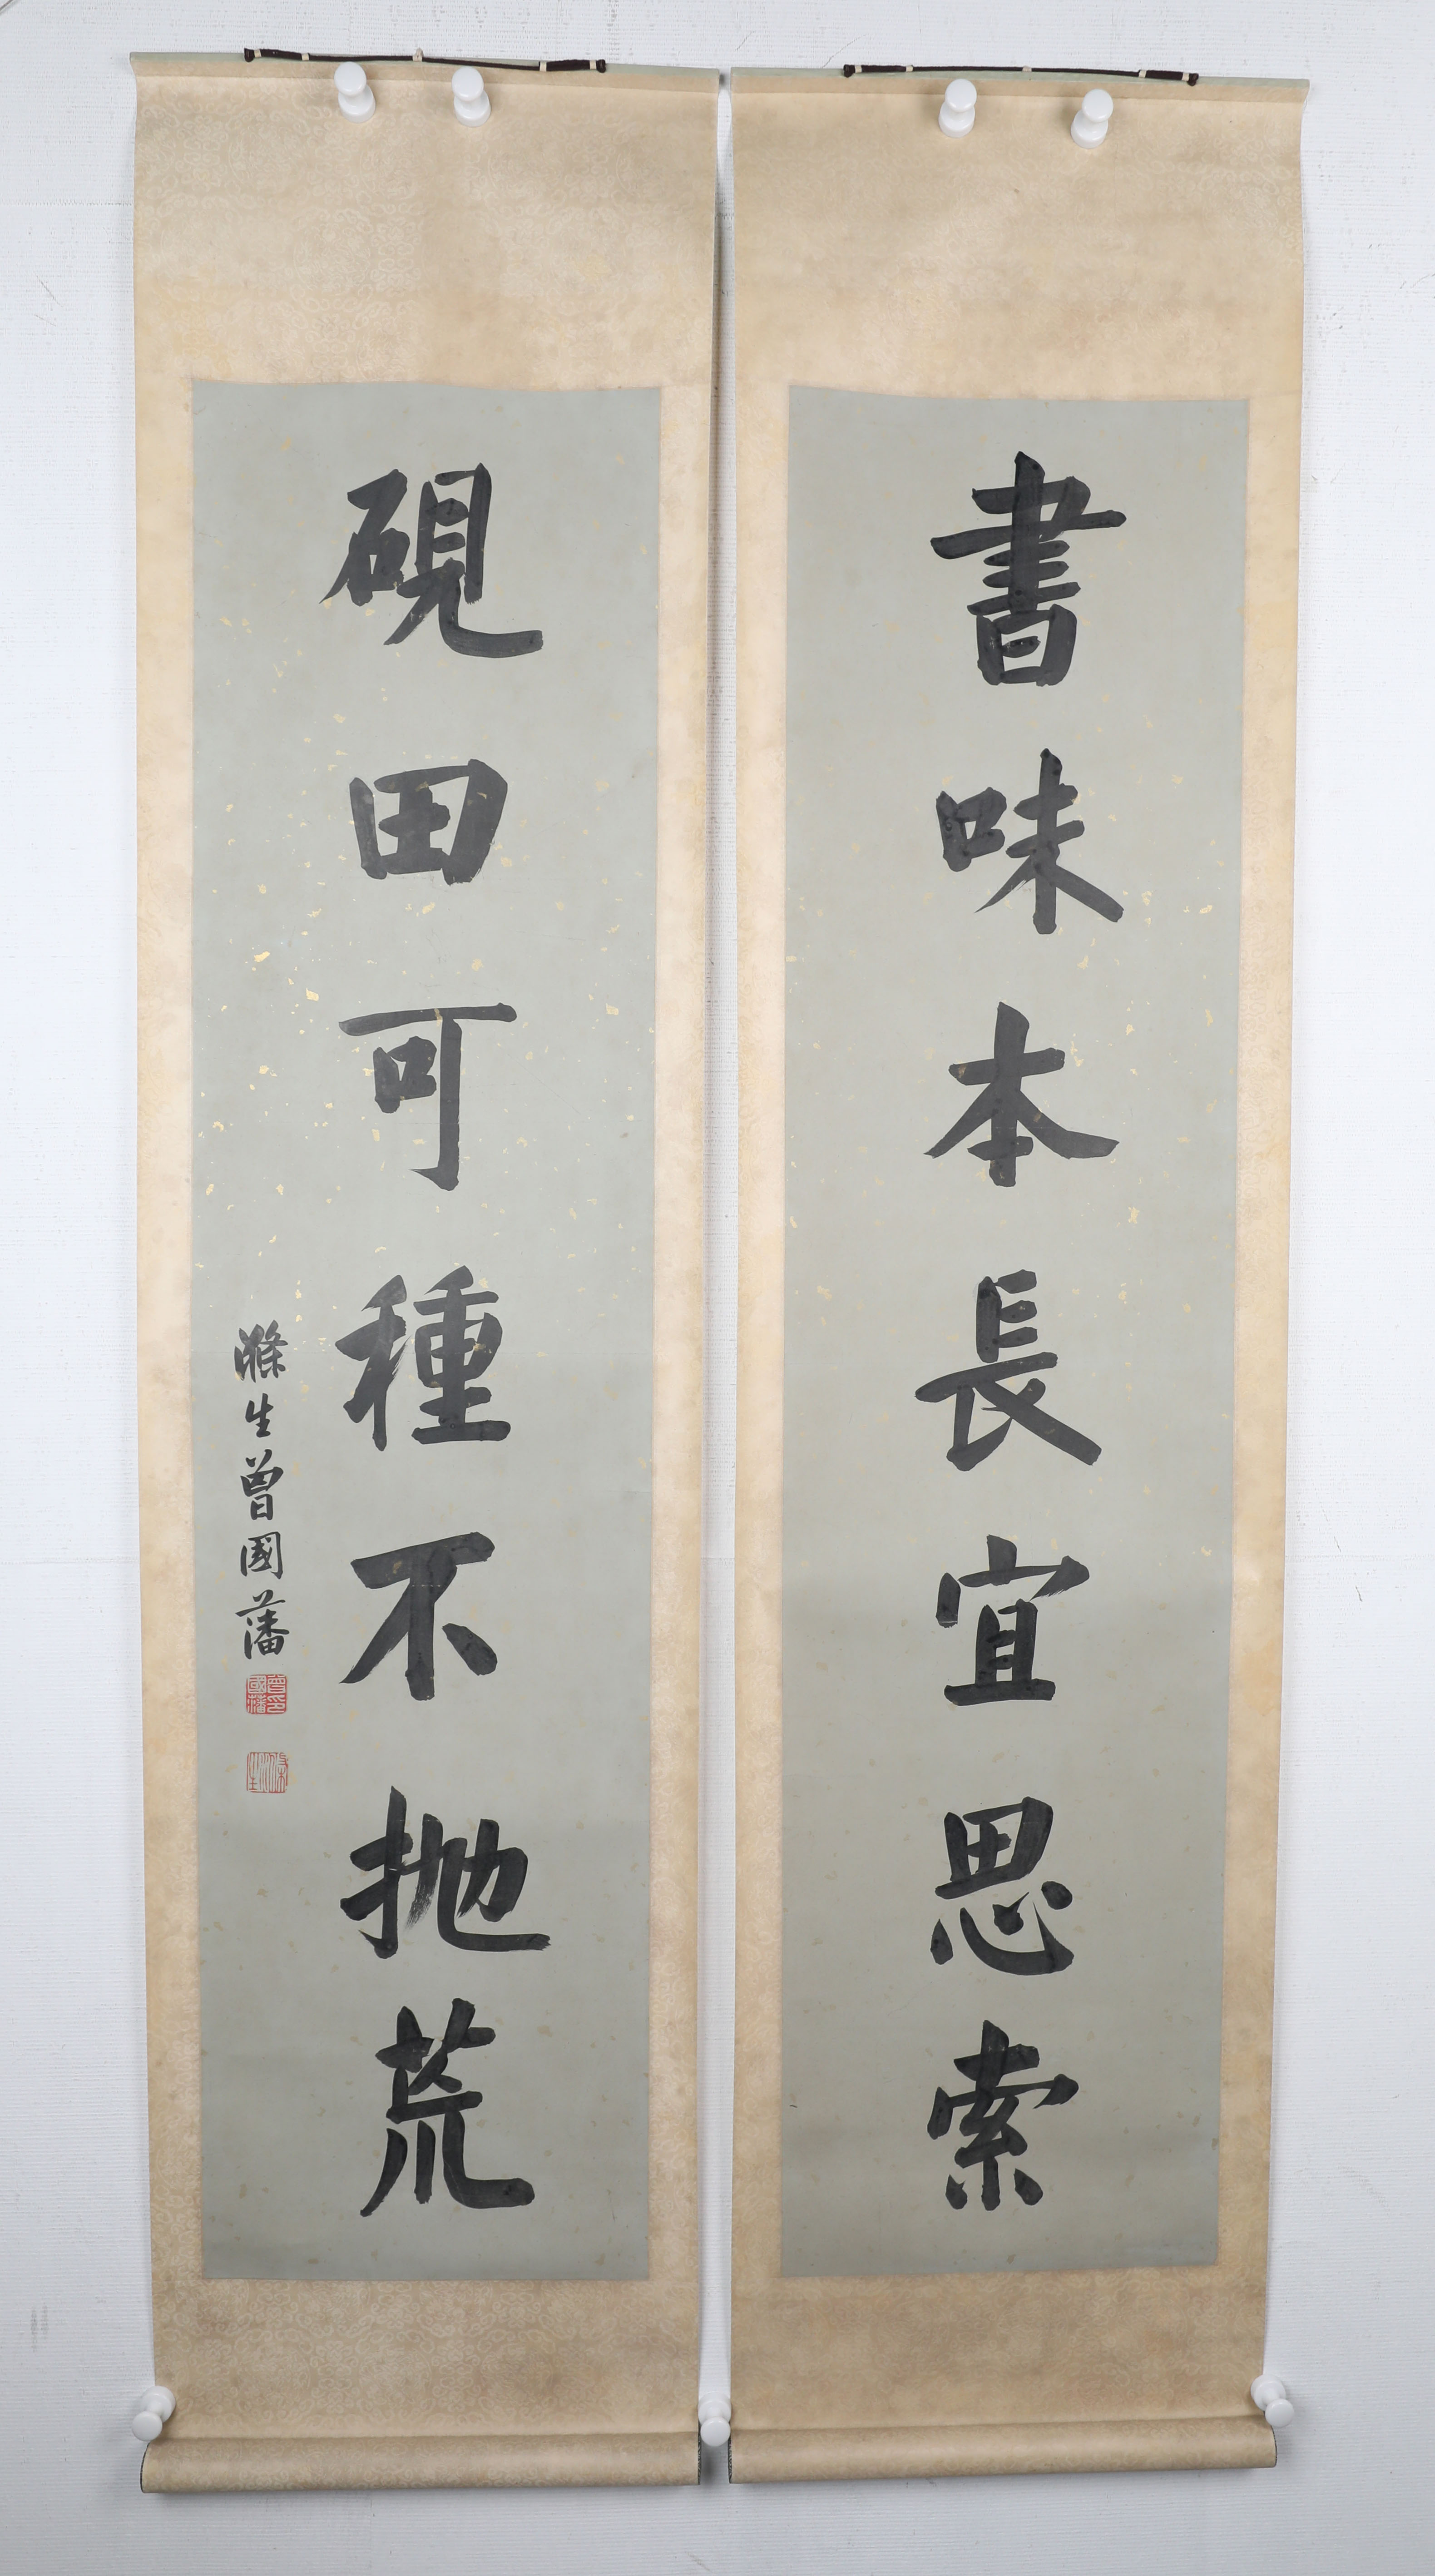 書味本長宜思索
硯田可種不拋荒
滌生曾國藩
曾國藩印
滌生